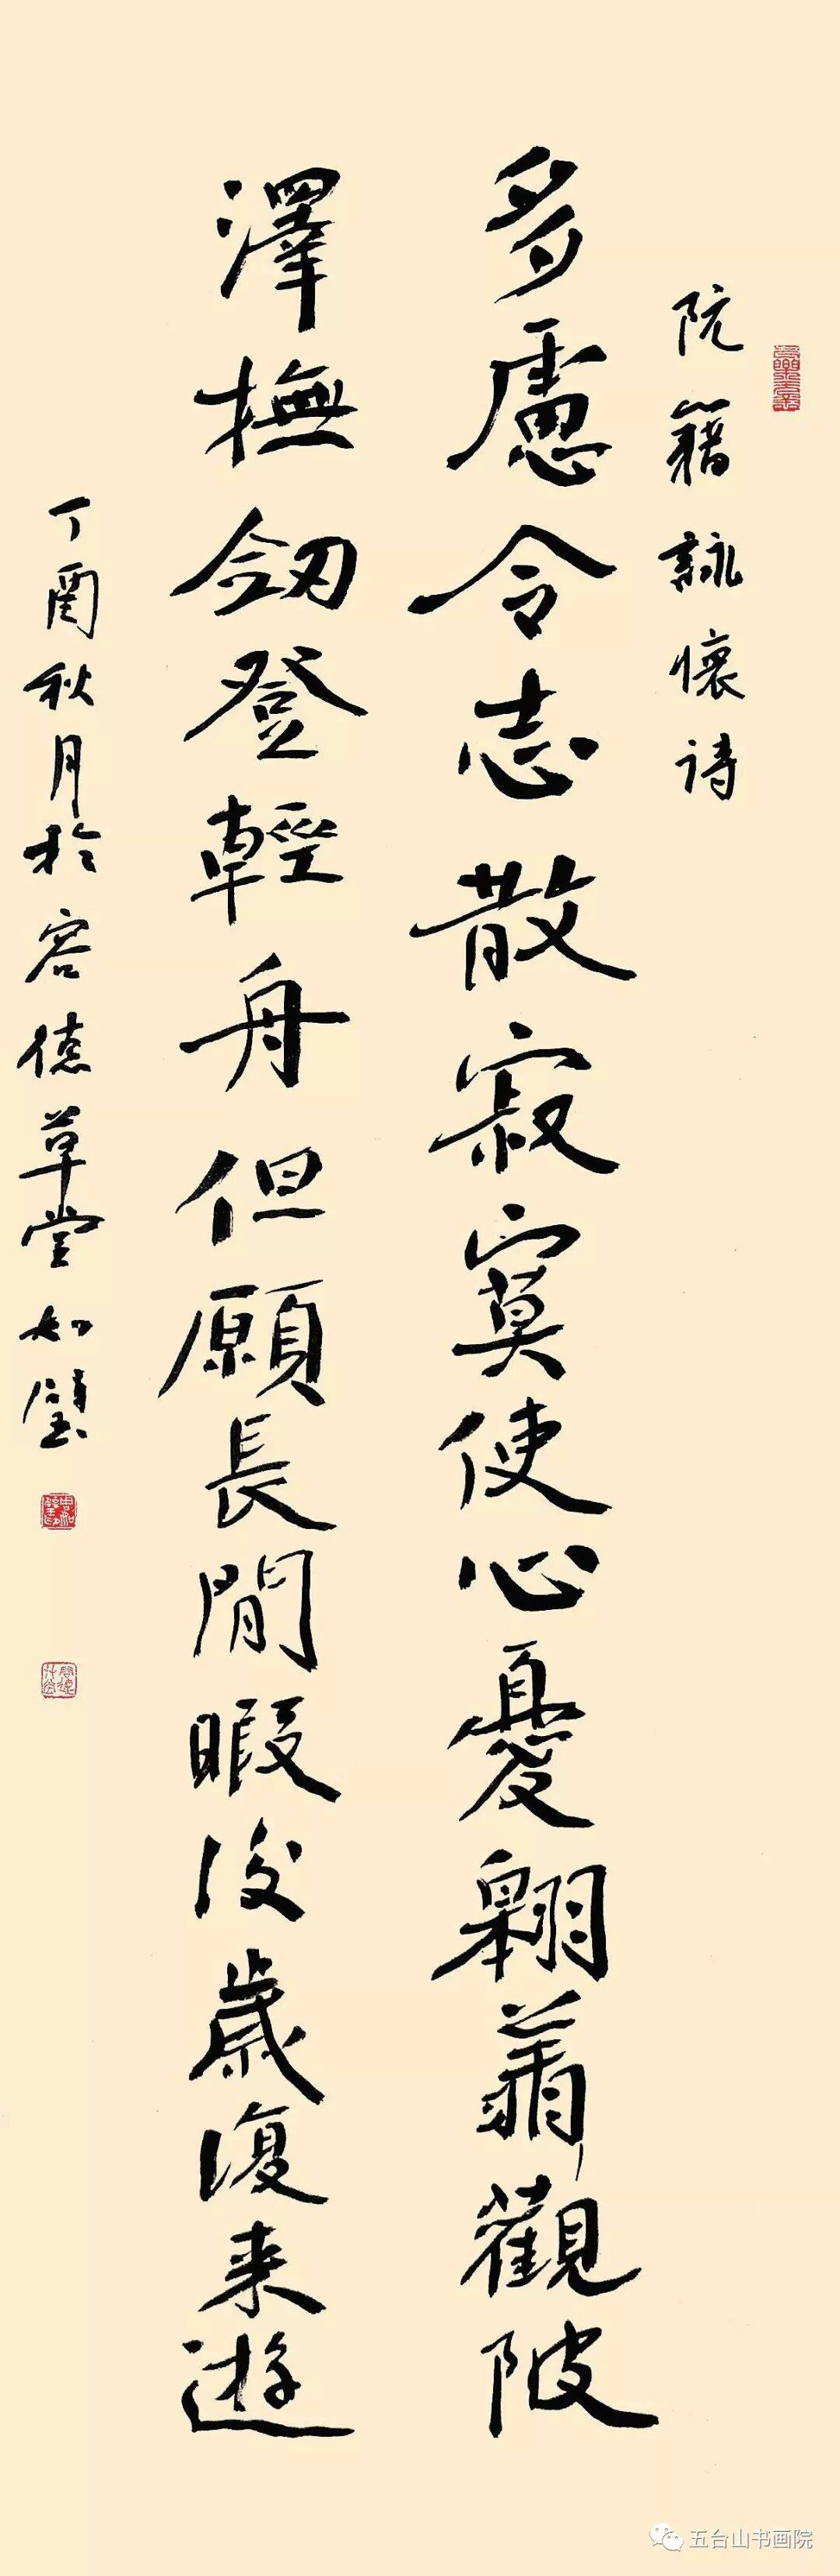 阮籍詠懷诗
多慮令志散寂寞使心憂翱翔觀陂
澤撫劔登輕舟但願長閒暇後歲復来遊
丁酉秋月於容德草堂如璧
五台山书画院